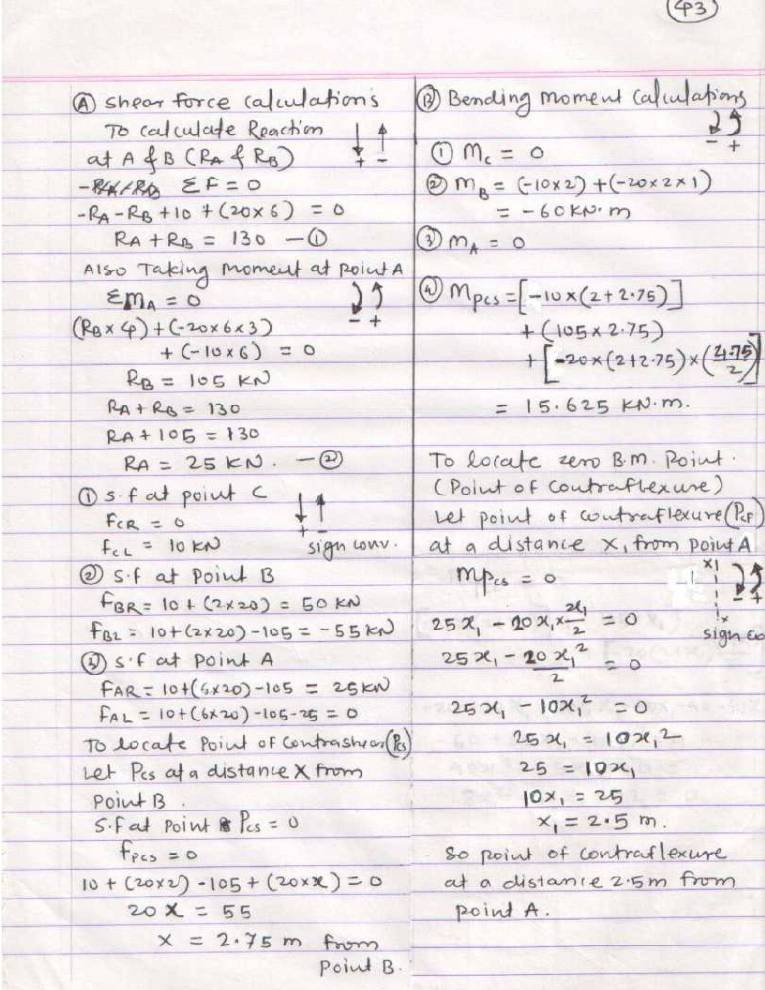 43
Ⓐ Shear force calculations
To calculate Reaction
at A & B (RA & RB)
+ -
ΣF = 0
-RA - RB + 10 + (20×6) = 0
RA + RB = 130 — ①
Also Taking moment at point A
ΣMA = 0
- +
(RB × 4) + (-20×6×3)
+ (-10×6) = 0
RB = 105 KN
RA + RB = 130
RA + 105 = 130
RA = 25 KN. — ②
① S.f at point C
FCR = 0
fCL = 10 KN
+ -
sign conv.
② S.f at Point B
fBR = 10 + (2×20) = 50 KN
fBL = 10+(2×20)-105 = -55 KN
③ S.f at point A
FAR = 10+(6×20)-105 = 25 KN
fAL = 10+(6×20)-105-25 = 0
To locate Point of Contrashear (Pcs)
Let Pcs at a distance X from
Point B.
S.f at Point Pcs = 0
fPcs = 0
10 + (20×2) - 105 + (20×x) = 0
20 x = 55
x = 2.75 m from
Point B.
Ⓑ Bending moment Calculations
- +
① Mc = 0
② MB = (-10×2) + (-20×2×1)
= -60 KN.m
③ MA = 0
④ Mpcs = [-10×(2+2.75)]
+ (105×2.75)
+ [-20×(2+2.75)×(4.75/2)]
= 15.625 KN.m.
To locate zero B.M. Point.
(Point of Contraflexure)
Let point of contraflexure (PCF)
at a distance X1 from point A
Mpcs = 0
x1
- +
x
sign co
25x1 - 20x1 × x1/2 = 0
25x1 - 20x1²/2 = 0
25x1 - 10x1² = 0
25x1 = 10x1²
25 = 10x1
10x1 = 25
x1 = 2.5 m.
So point of contraflexure
at a distance 2.5m from
point A.